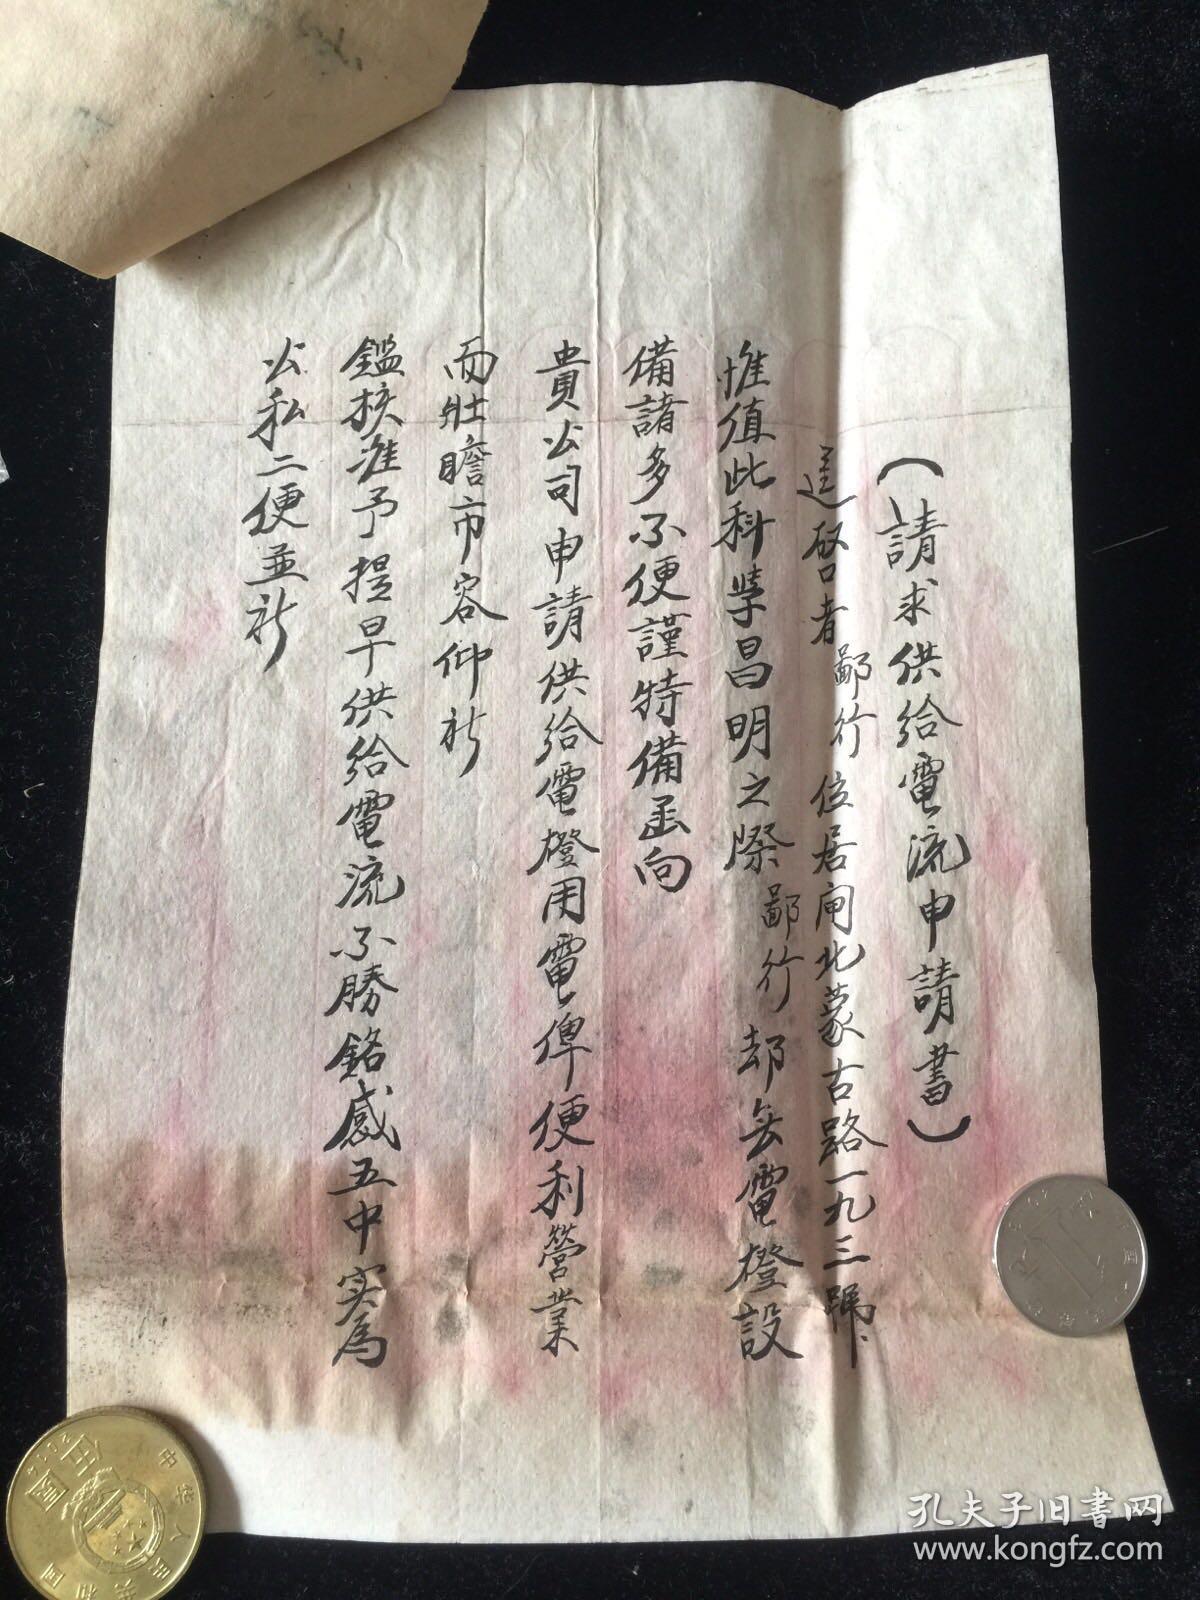 （請求供給電流申請書）
逕啓者鄙行位居閘北蒙古路一九三號
惟值此科学昌明之際鄙行却無電橙設
備諸多不便謹特備函向
貴公司申請供給電橙用電俾便利營業
而壯瞻市容仰祈
鑑核准予提早供給電流不勝銘感五中实為
公私二便並祈
孔夫子旧书网
www.kongfz.com